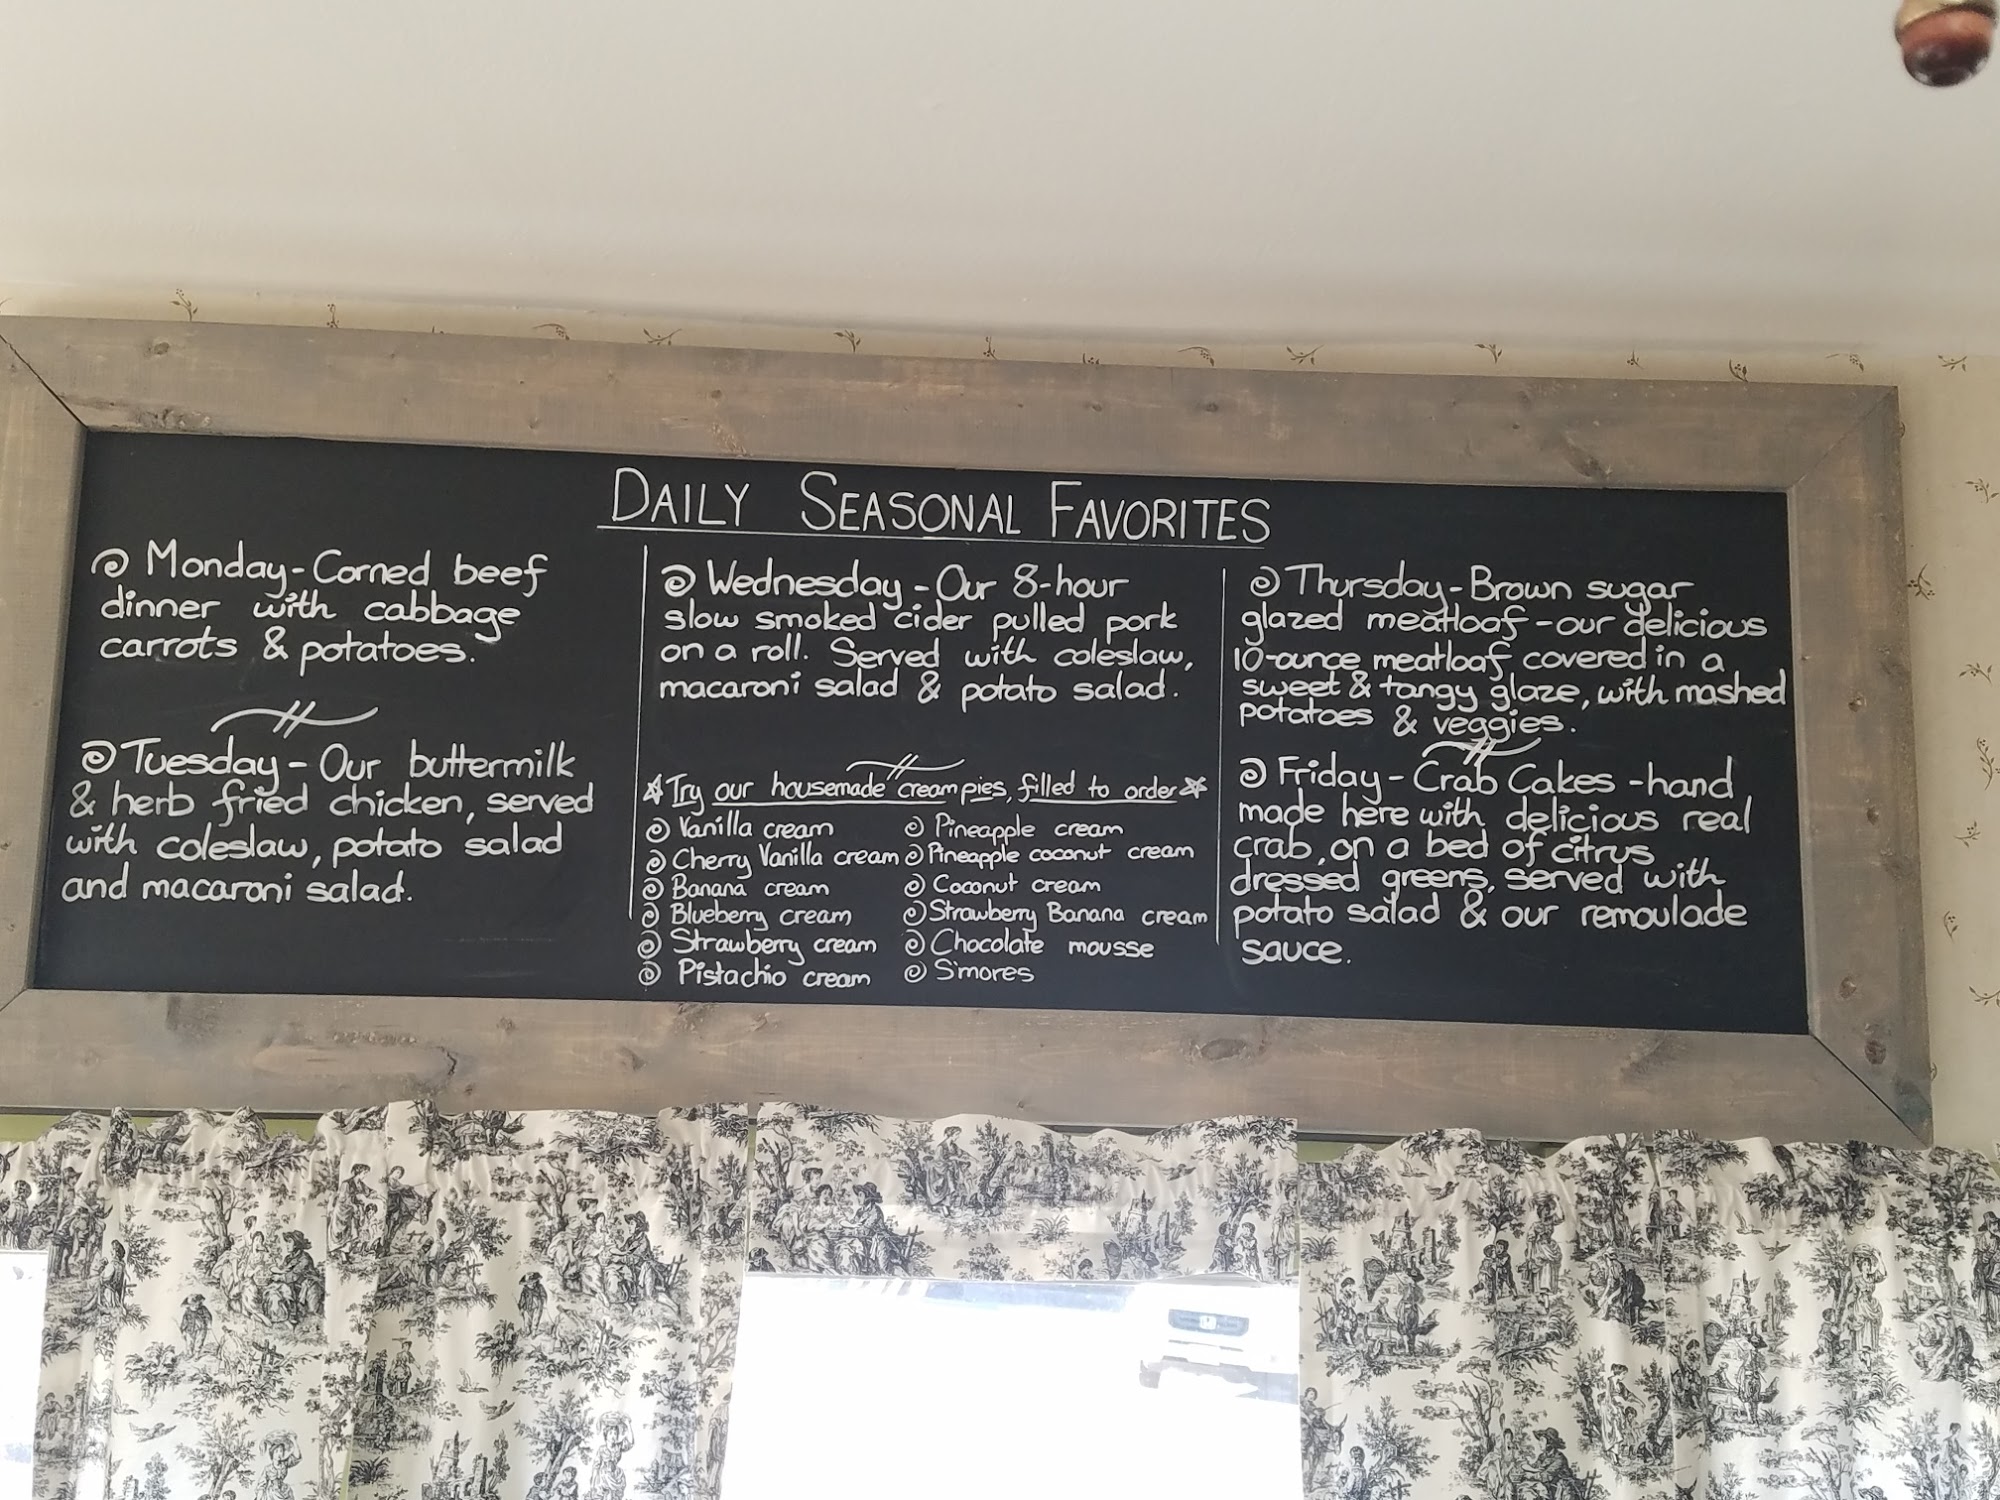 DAILY SEASONAL FAVORITES
Monday - Corned beef
dinner with cabbage
carrots & potatoes.
Tuesday - Our buttermilk
& herb fried chicken, served
with coleslaw, potato salad
and macaroni salad.
Wednesday - Our 8-hour
slow smoked cider pulled pork
on a roll. Served with coleslaw,
macaroni salad & potato salad.
Try our housemade cream pies, filled to order
Vanilla cream
Cherry Vanilla cream
Banana cream
Blueberry cream
Strawberry cream
Pistachio cream
Pineapple cream
Pineapple coconut cream
Coconut cream
Strawberry Banana cream
Chocolate mousse
S'mores
Thursday - Brown sugar
glazed meatloaf - our delicious
10-ounce meatloaf covered in a
sweet & tangy glaze, with mashed
potatoes & veggies.
Friday - Crab Cakes - hand
made here with delicious real
crab, on a bed of citrus
dressed greens, served with
potato salad & our remoulade
sauce.